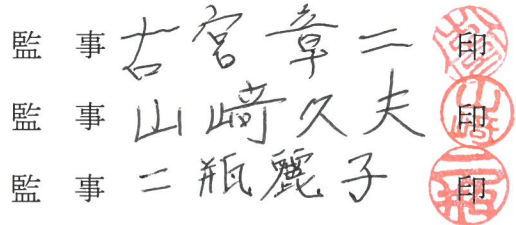 監 事 古宮章二 印
監 事 山﨑久夫 印
監 事 二瓶麗子 印